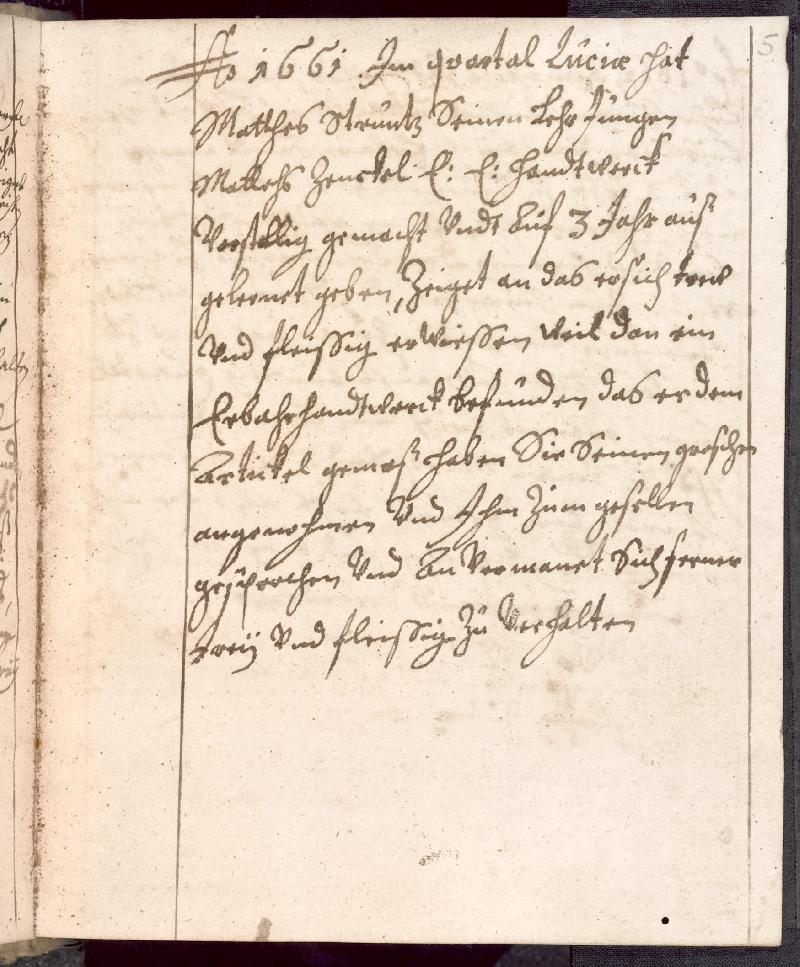 5
Ao 1661 Im quartal Luciæ hat
Matthes Struntz Seinen Lehr Jungen
Mattehs Zenckel E: E: Handtwerck
Vorstellig gemacht Undt Auf 3 Jahr aus
gelernet geben, Zeiget an das er sich trew
Und fleissig erwiessen weil dan ein
Erbahr handtwerck befunden das er dem
Artickel gemeß haben Sie Seinen groschen
angenohmen Und Ihm Zum gesellen
gesprochen Und An Vermanet Sich ferner
treij Und fleissig Zu Verhalten